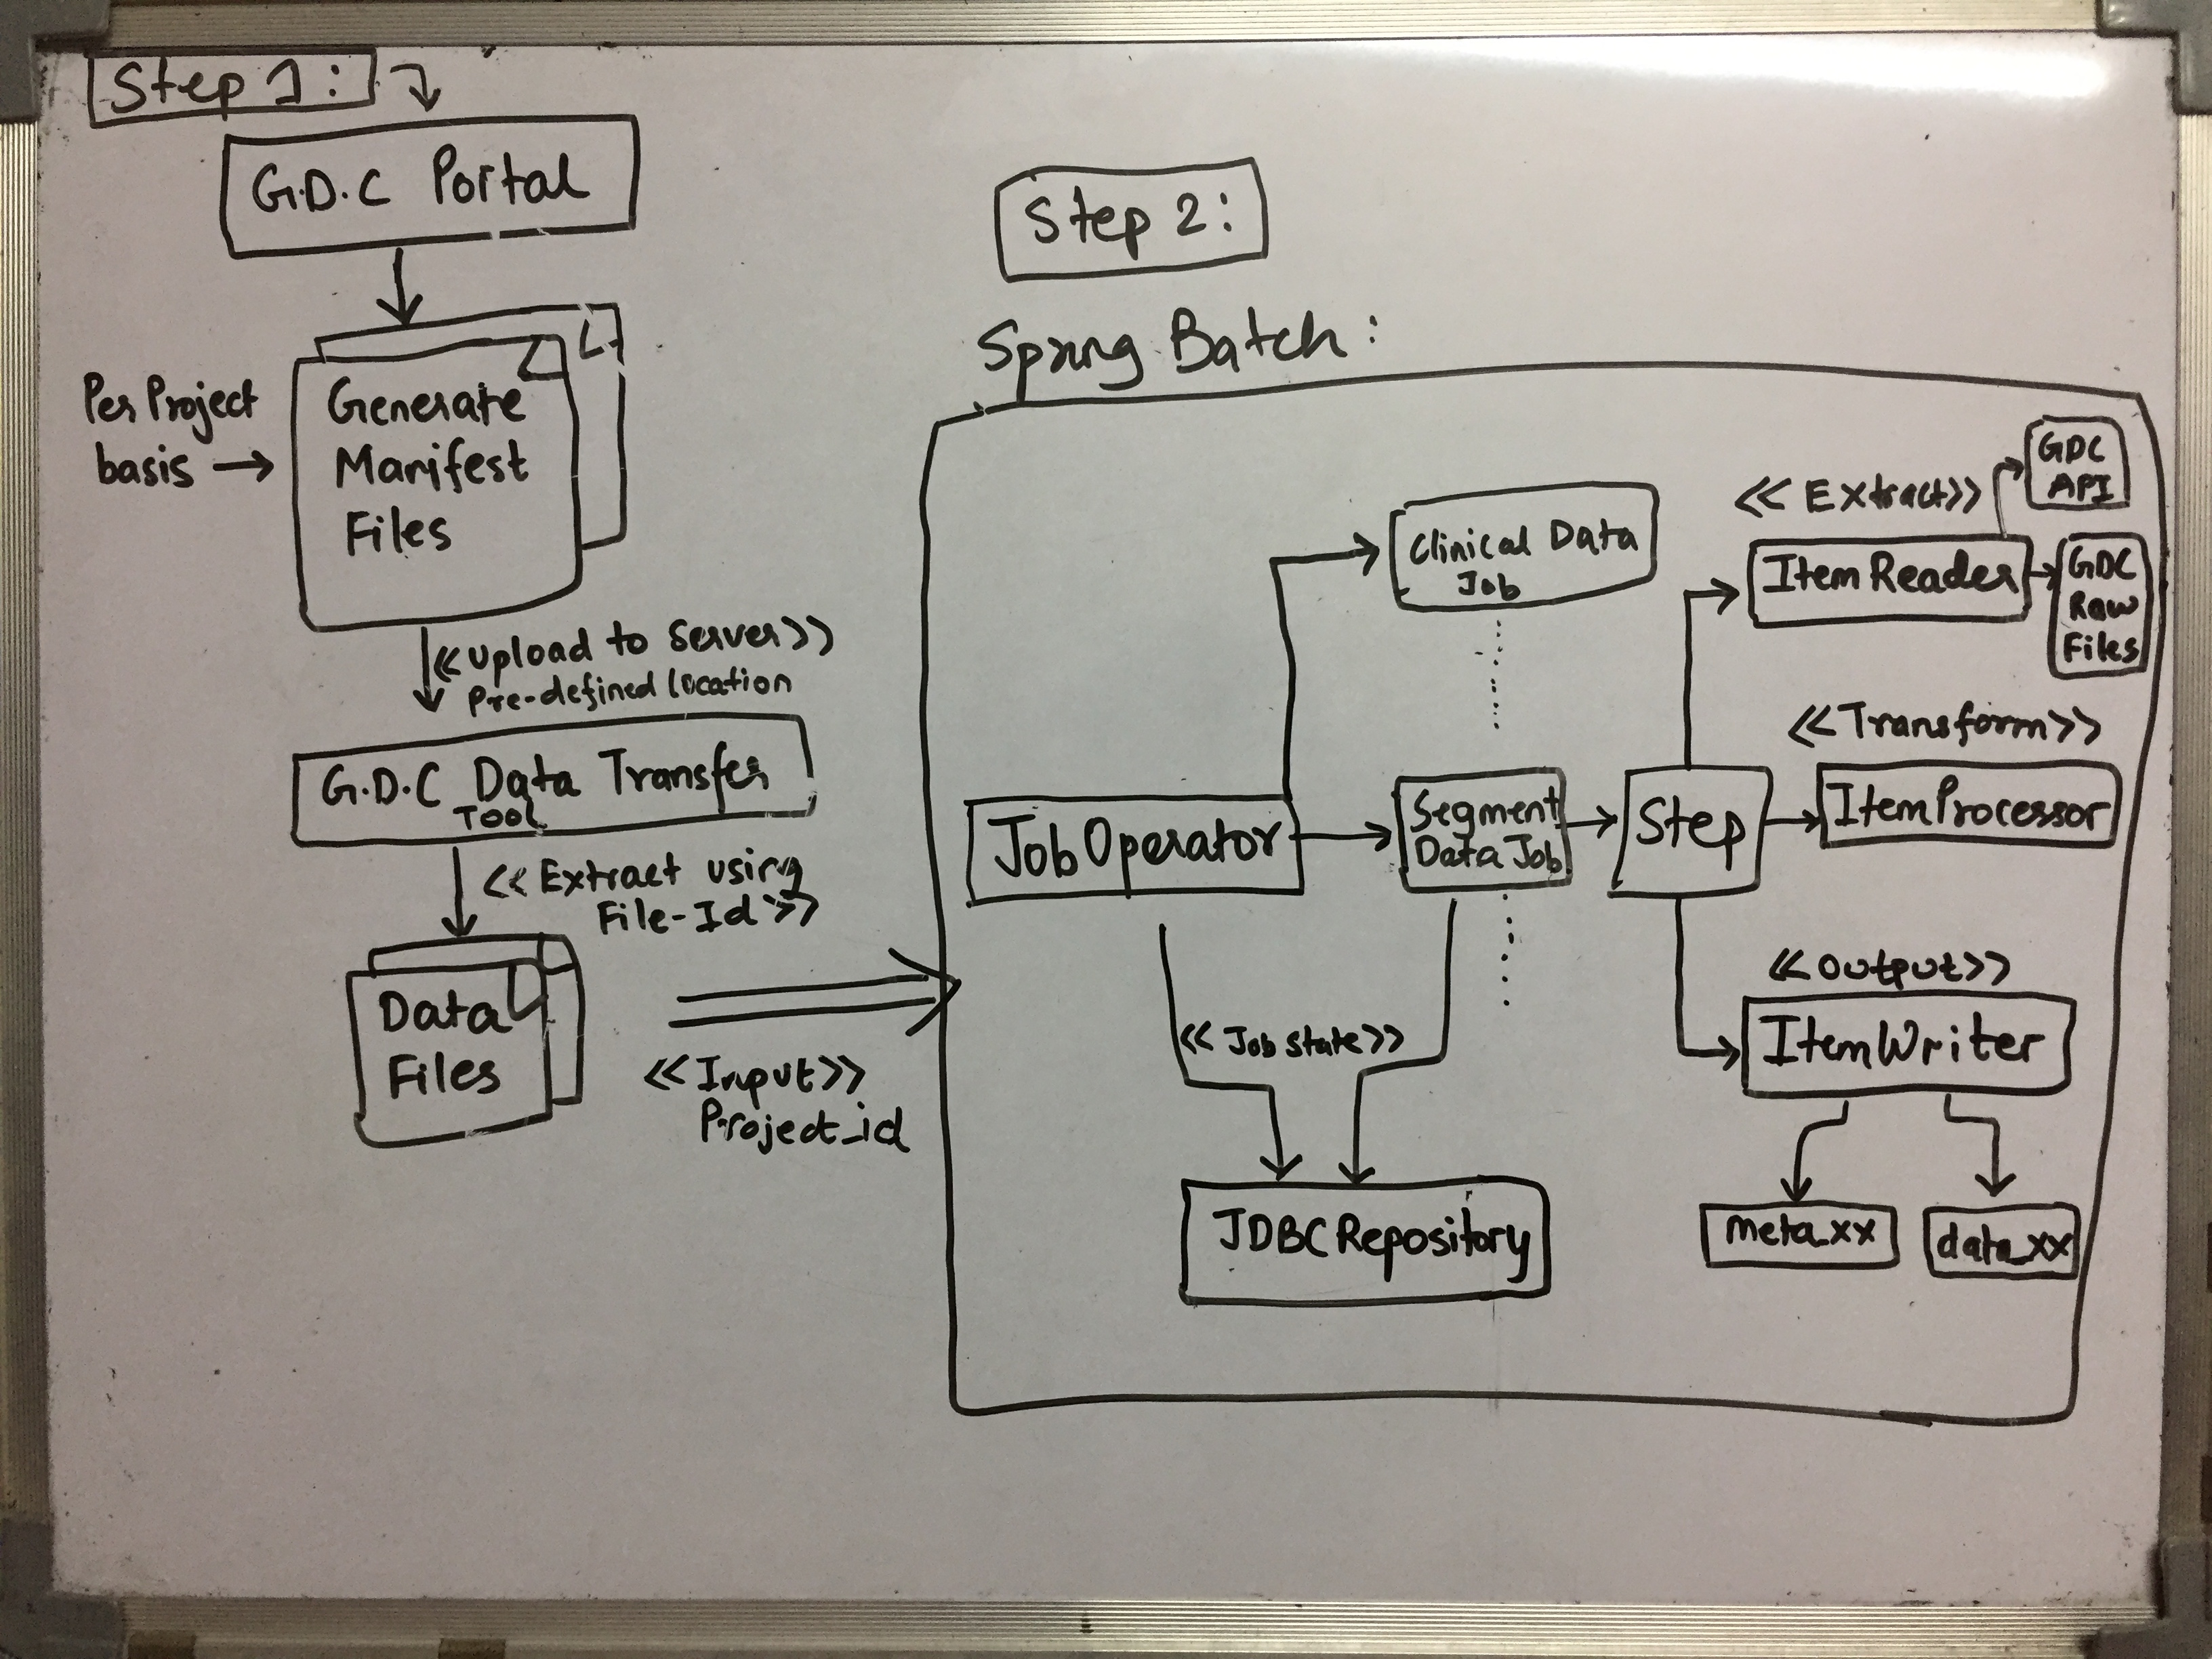 Step 1:
G.D.C Portal
Per Project
basis
Generate
Manifest
Files
<<Upload to Server>>
Pre-defined location
G.D.C Data Transfer
Tool
<<Extract using
File-Id>>
Data
Files
<<Input>>
Project_id
Step 2:
Spring Batch:
JobOperator
Clinical Data
Job
Segment
Data Job
Step
<<Extract>>
ItemReader
GDC
API
GDC
Raw
Files
<<Transform>>
ItemProcessor
<<Output>>
ItemWriter
meta_xx
data_xx
<<Job state>>
JDBCRepository